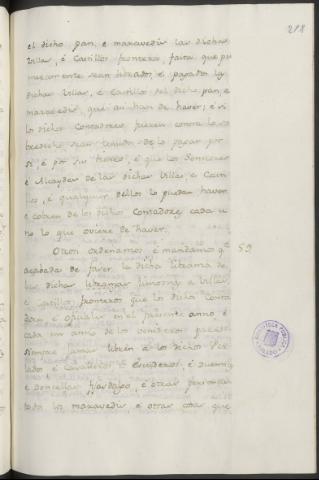 218
el dicho pan, e maravedis las dichas
villas, é Castillos fronteros, fasta que pri
meramente sean librados, e pagados las
dichas villas, é Castillos del dicho pan, e
maravedis, que an han de haver; é si
los dichos Contadores fueren contra lo so
bredicho sean tenudos de lo pagar por
si, é por sus bienes, é que los
e Alcaydes de las dichas villas, e Casti
llos, é qualquier dellos lo puedan haver
e cobren de los dichos Contadores cada u
no lo que oviere de haver.
Otrosi ordenamos é mandamos q.e 59
acabadas de facer la dicha librama de
las dichas é villas,
é Castillos fronteros que los dichos Conta
dores é oficiales en el presente año, é
cada un año de los venideros para
siempre jamas libren á los dichos Per
lados é Cavalleros é Escuderos, é dueñas
e doncellas é otras personas
todos los maravedis, é otras cosas que